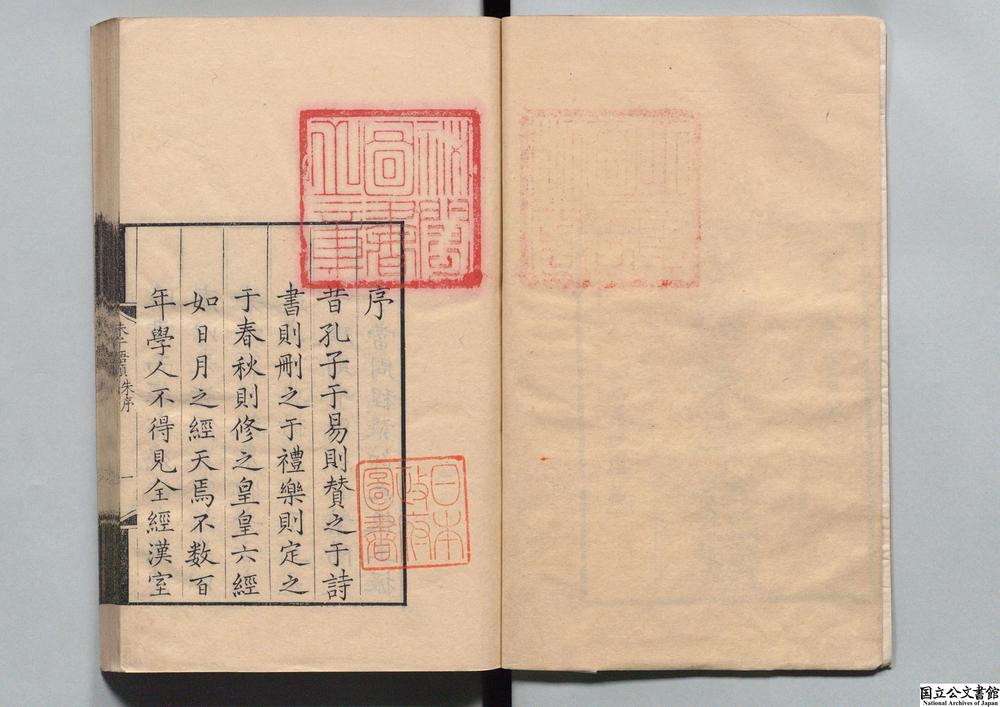 序
昔孔子于易則賛之于詩
書則刪之于禮樂則定之
于春秋則修之皇皇六經
如日月之經天焉不数百
年學人不得見全經漢室
朱序
一
秘閣
圖書
之章
日本
政府
圖書
国立公文書館
National Archives of Japan